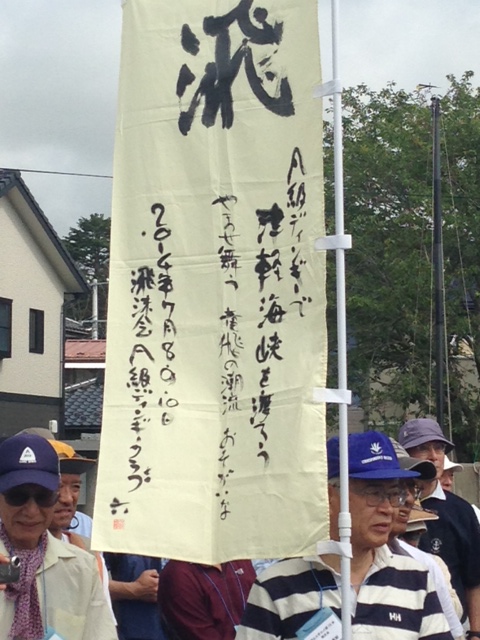 飛
A級ディンギーで
津軽海峡を渡ろう
やませ舞う 竜飛の潮流 おそがいな
2014年7月8.9.10日
飛沫会 A級ディンギークラブ
六